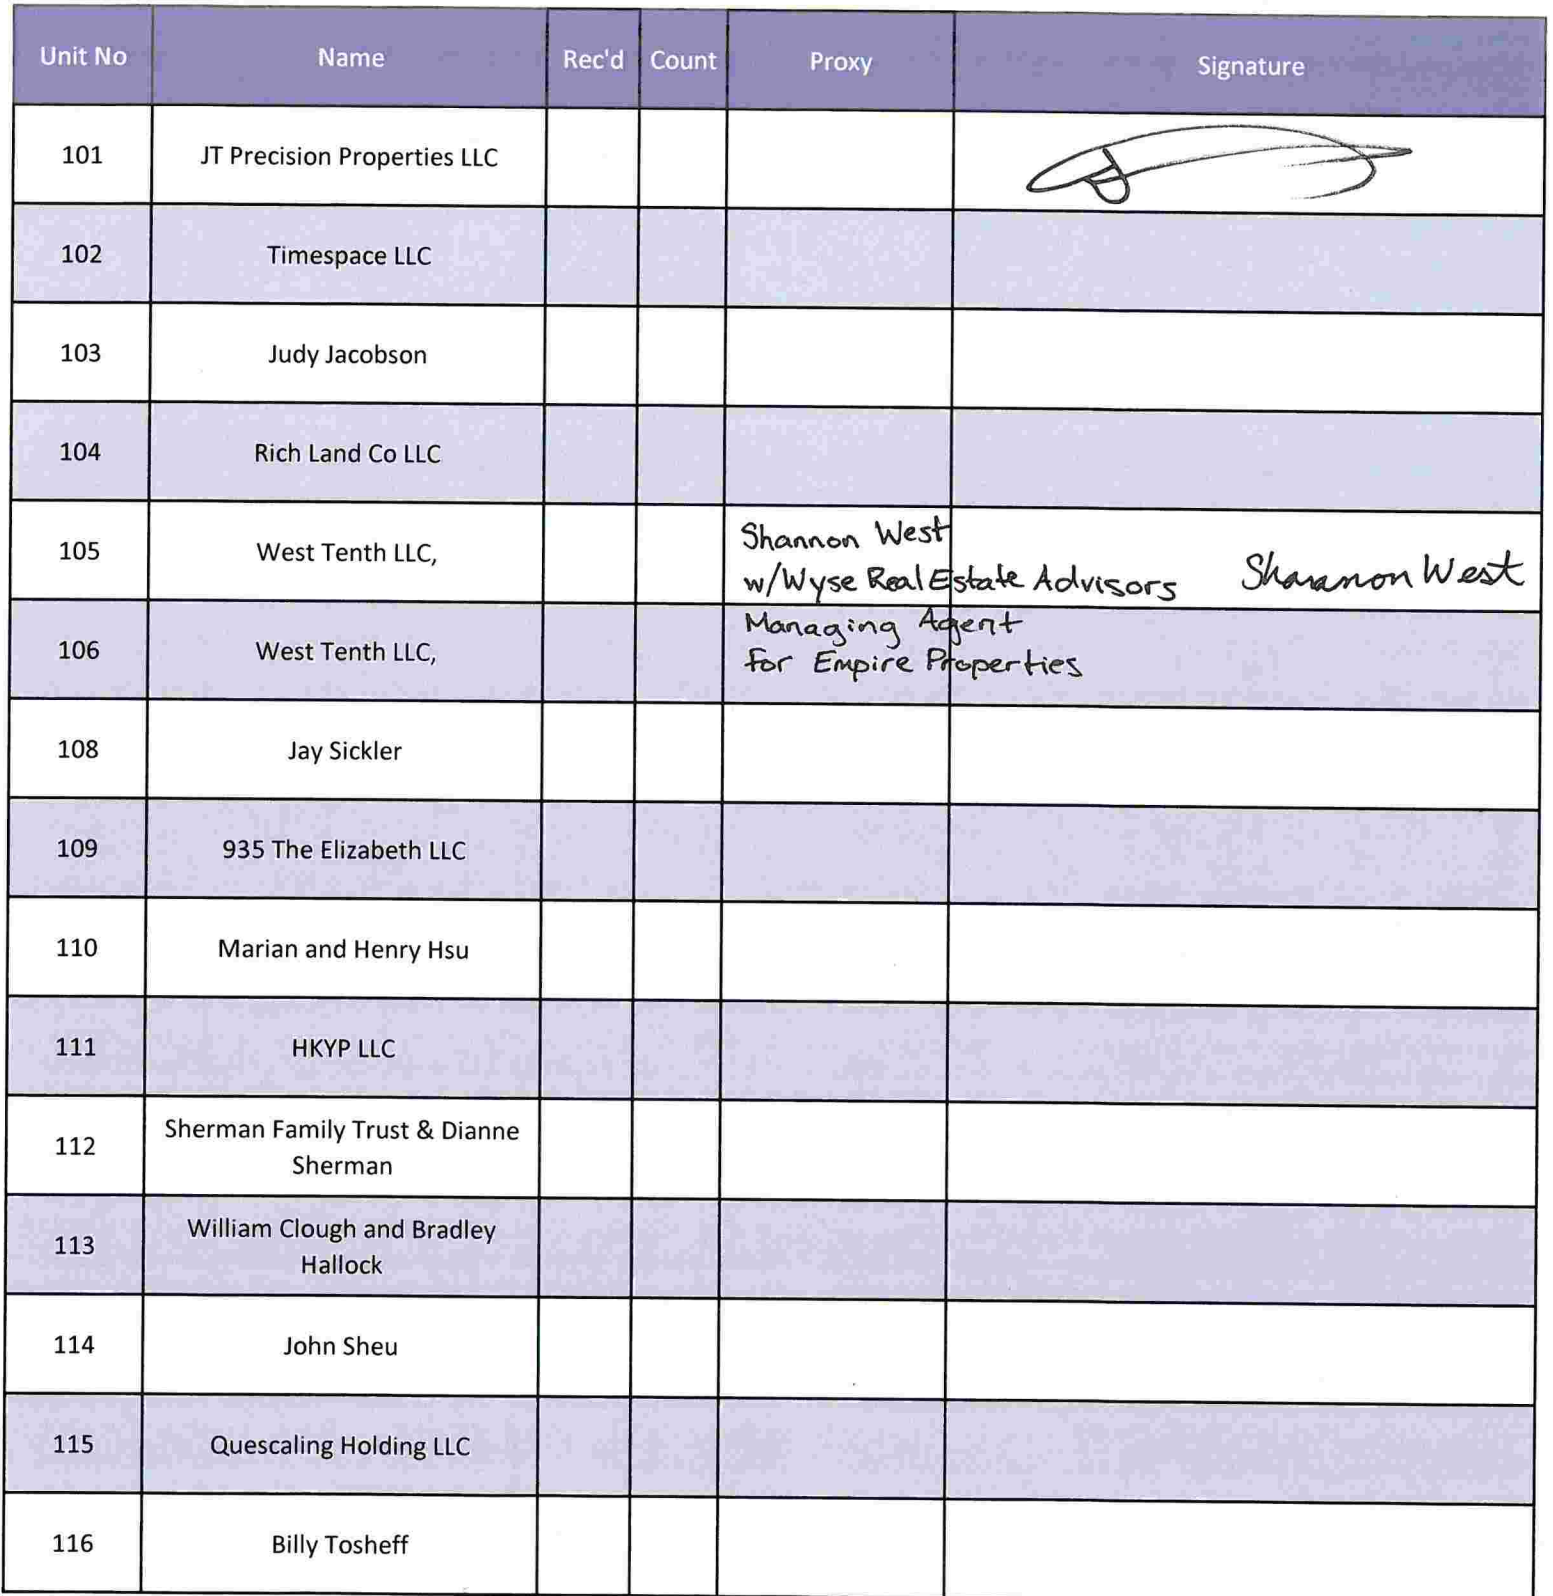 Unit No Name Rec'd Count Proxy Signature
101 JT Precision Properties LLC
102 Timespace LLC
103 Judy Jacobson
104 Rich Land Co LLC
Shannon West
105 West Tenth LLC, w/Wyse Real Estate Advisors Shannon West
Managing Agent
106 West Tenth LLC, for Empire Properties
108 Jay Sickler
109 935 The Elizabeth LLC
110 Marian and Henry Hsu
111 HKYP LLC
112 Sherman Family Trust & Dianne
Sherman
113 William Clough and Bradley
Hallock
114 John Sheu
115 Quescaling Holding LLC
116 Billy Tosheff